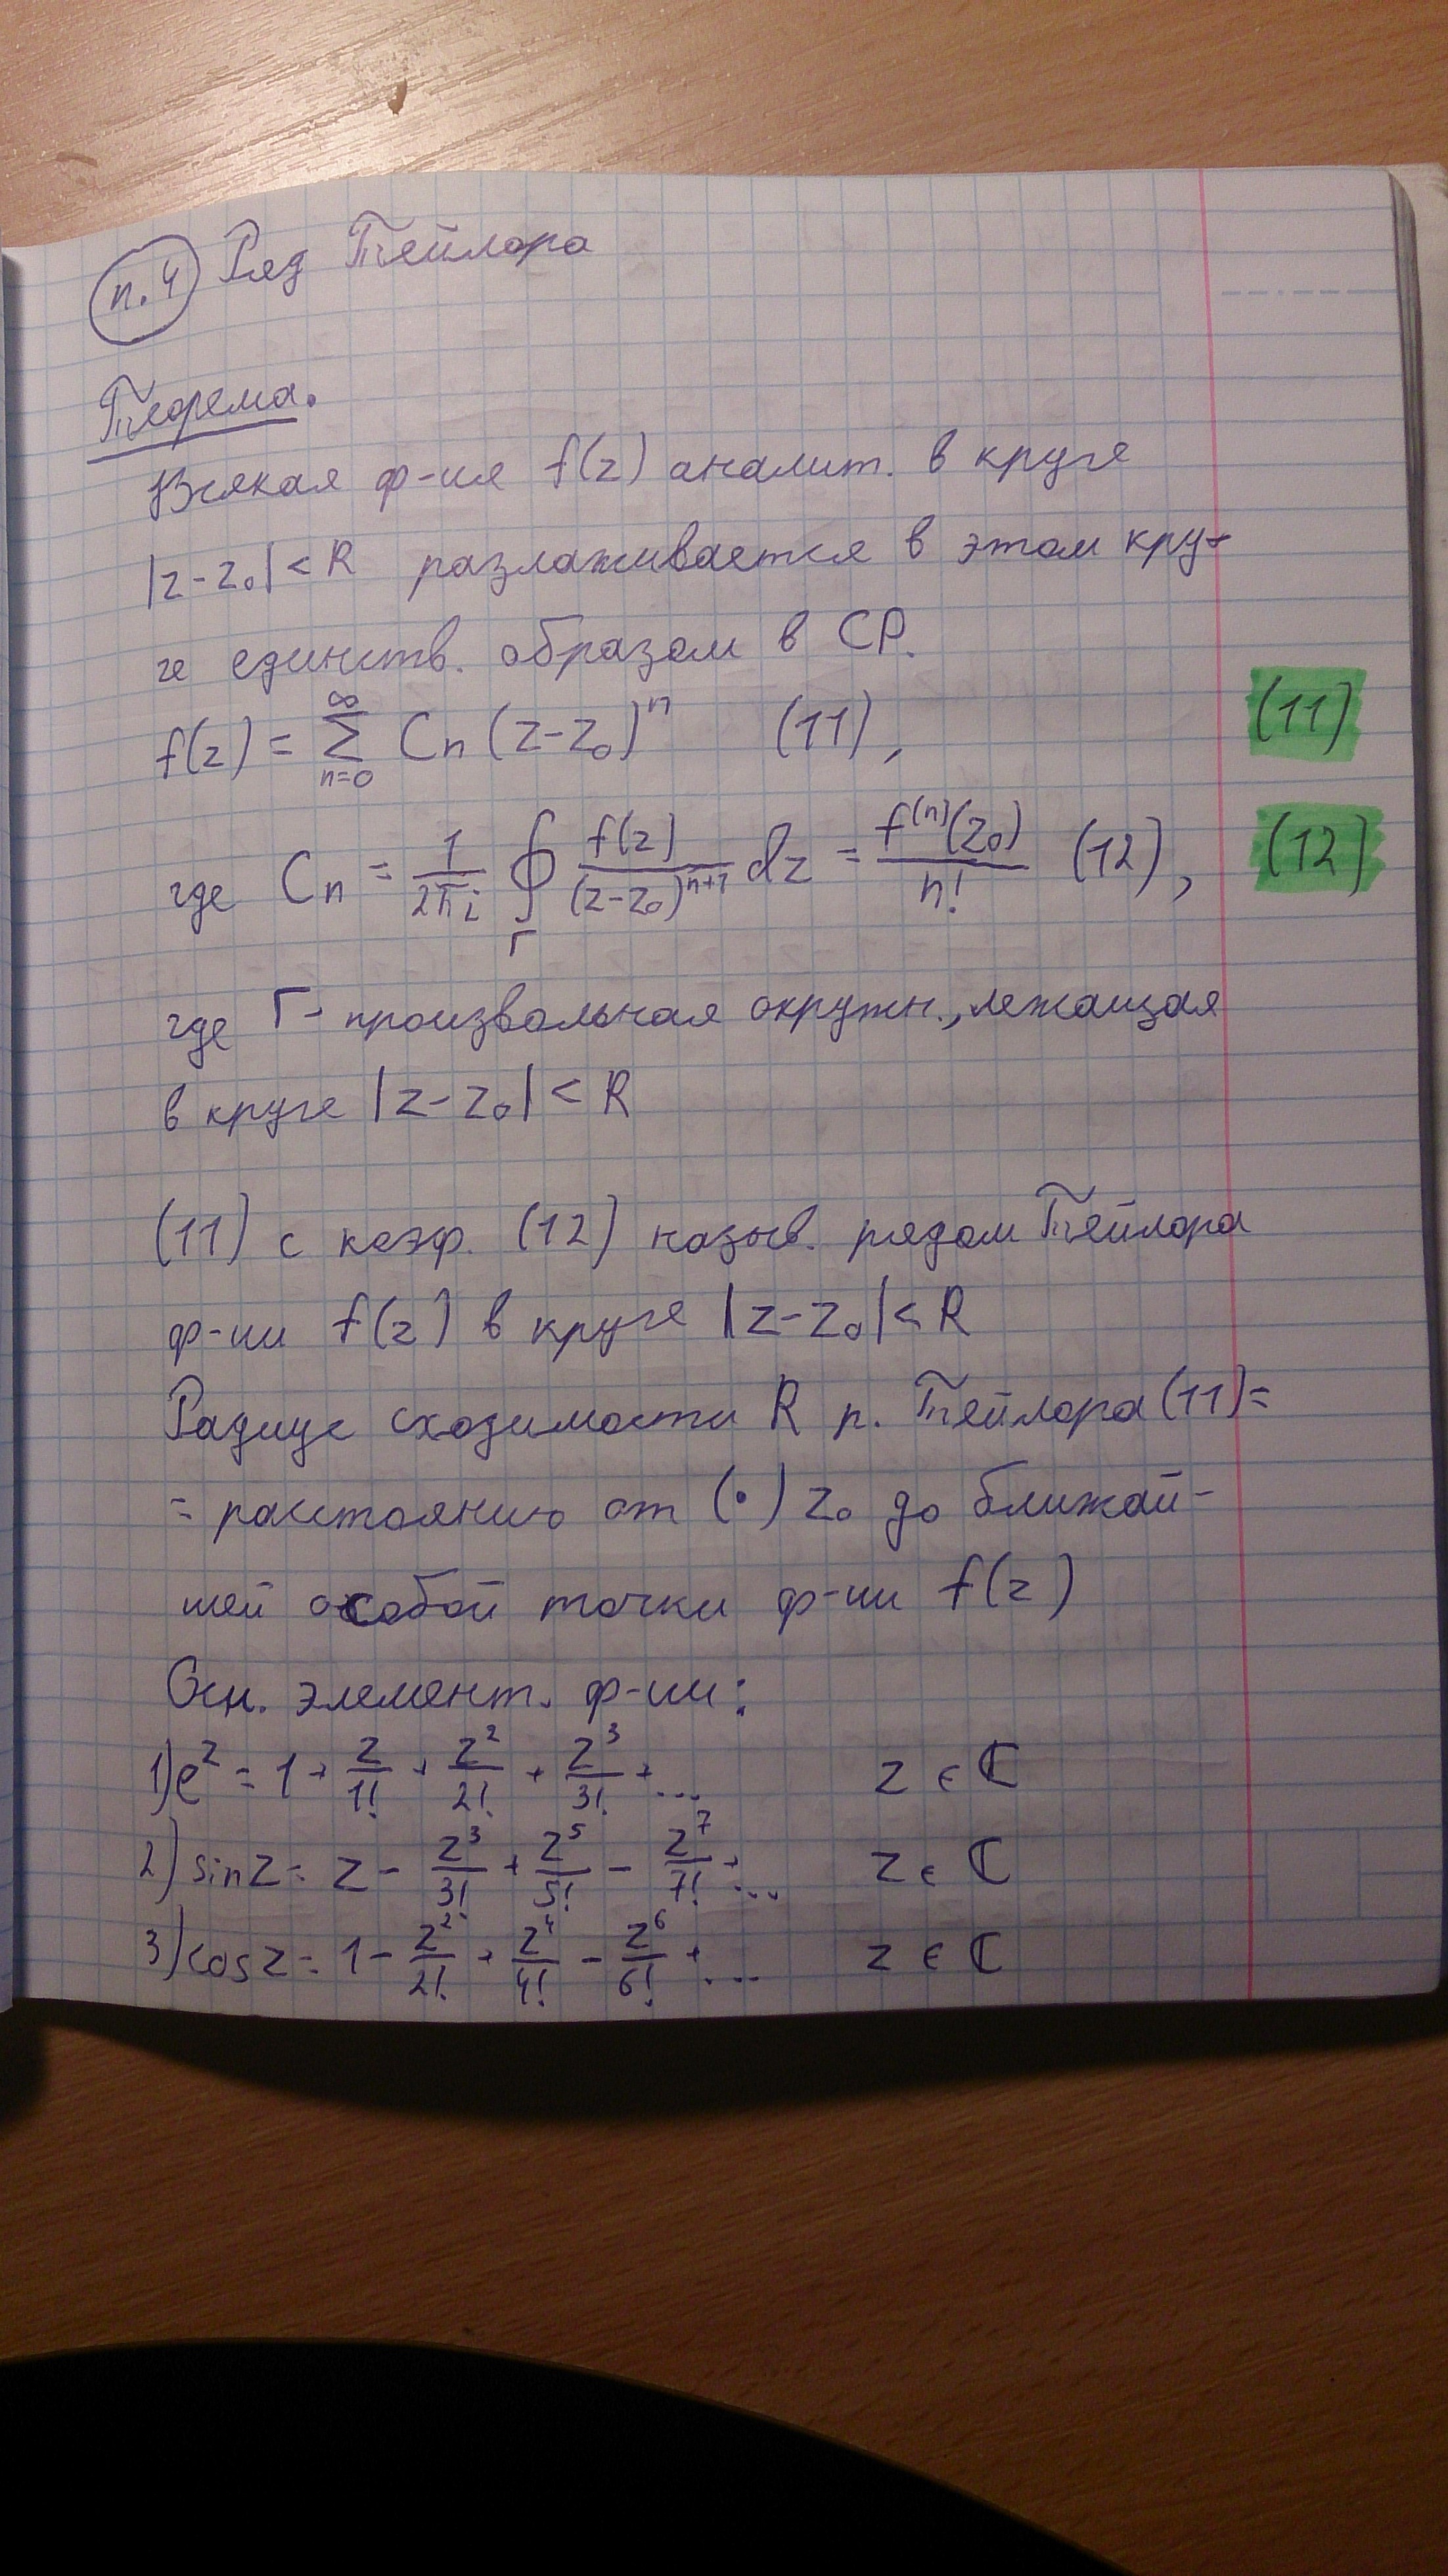 п.4 Ряд Тейлора
Теорема.
Всякая ф-ия f(z) аналит. в круге
|z-z₀|<R разлаживается в этом кру-
ге единств. образом в СР.
f(z) = ∑_{n=0}^{∞} Cn (z-z₀)ⁿ (11), (11)
где Cn = \frac{1}{2πi} ∮_Γ \frac{f(z)}{(z-z₀)^{n+1}} dz = \frac{f^{(n)}(z₀)}{n!} (12), (12)
где Γ - произвольная окружн., лежащая
в круге |z-z₀| < R
(11) с коэф. (12) назыв. рядом Тейлора
ф-ии f(z) в круге |z-z₀|<R
Радиус сходимости R р. Тейлора (11)=
= расстоянию от (·) z₀ до ближай-
шей особой точки ф-ии f(z)
Осн. элемент. ф-ии:
1) e^z = 1 + \frac{z}{1!} + \frac{z²}{2!} + \frac{z³}{3!} + ... z ∈ ℂ
2) sin z = z - \frac{z³}{3!} + \frac{z⁵}{5!} - \frac{z⁷}{7!} + ... z ∈ ℂ
3) cos z = 1 - \frac{z²}{2!} + \frac{z⁴}{4!} - \frac{z⁶}{6!} + ... z ∈ ℂ